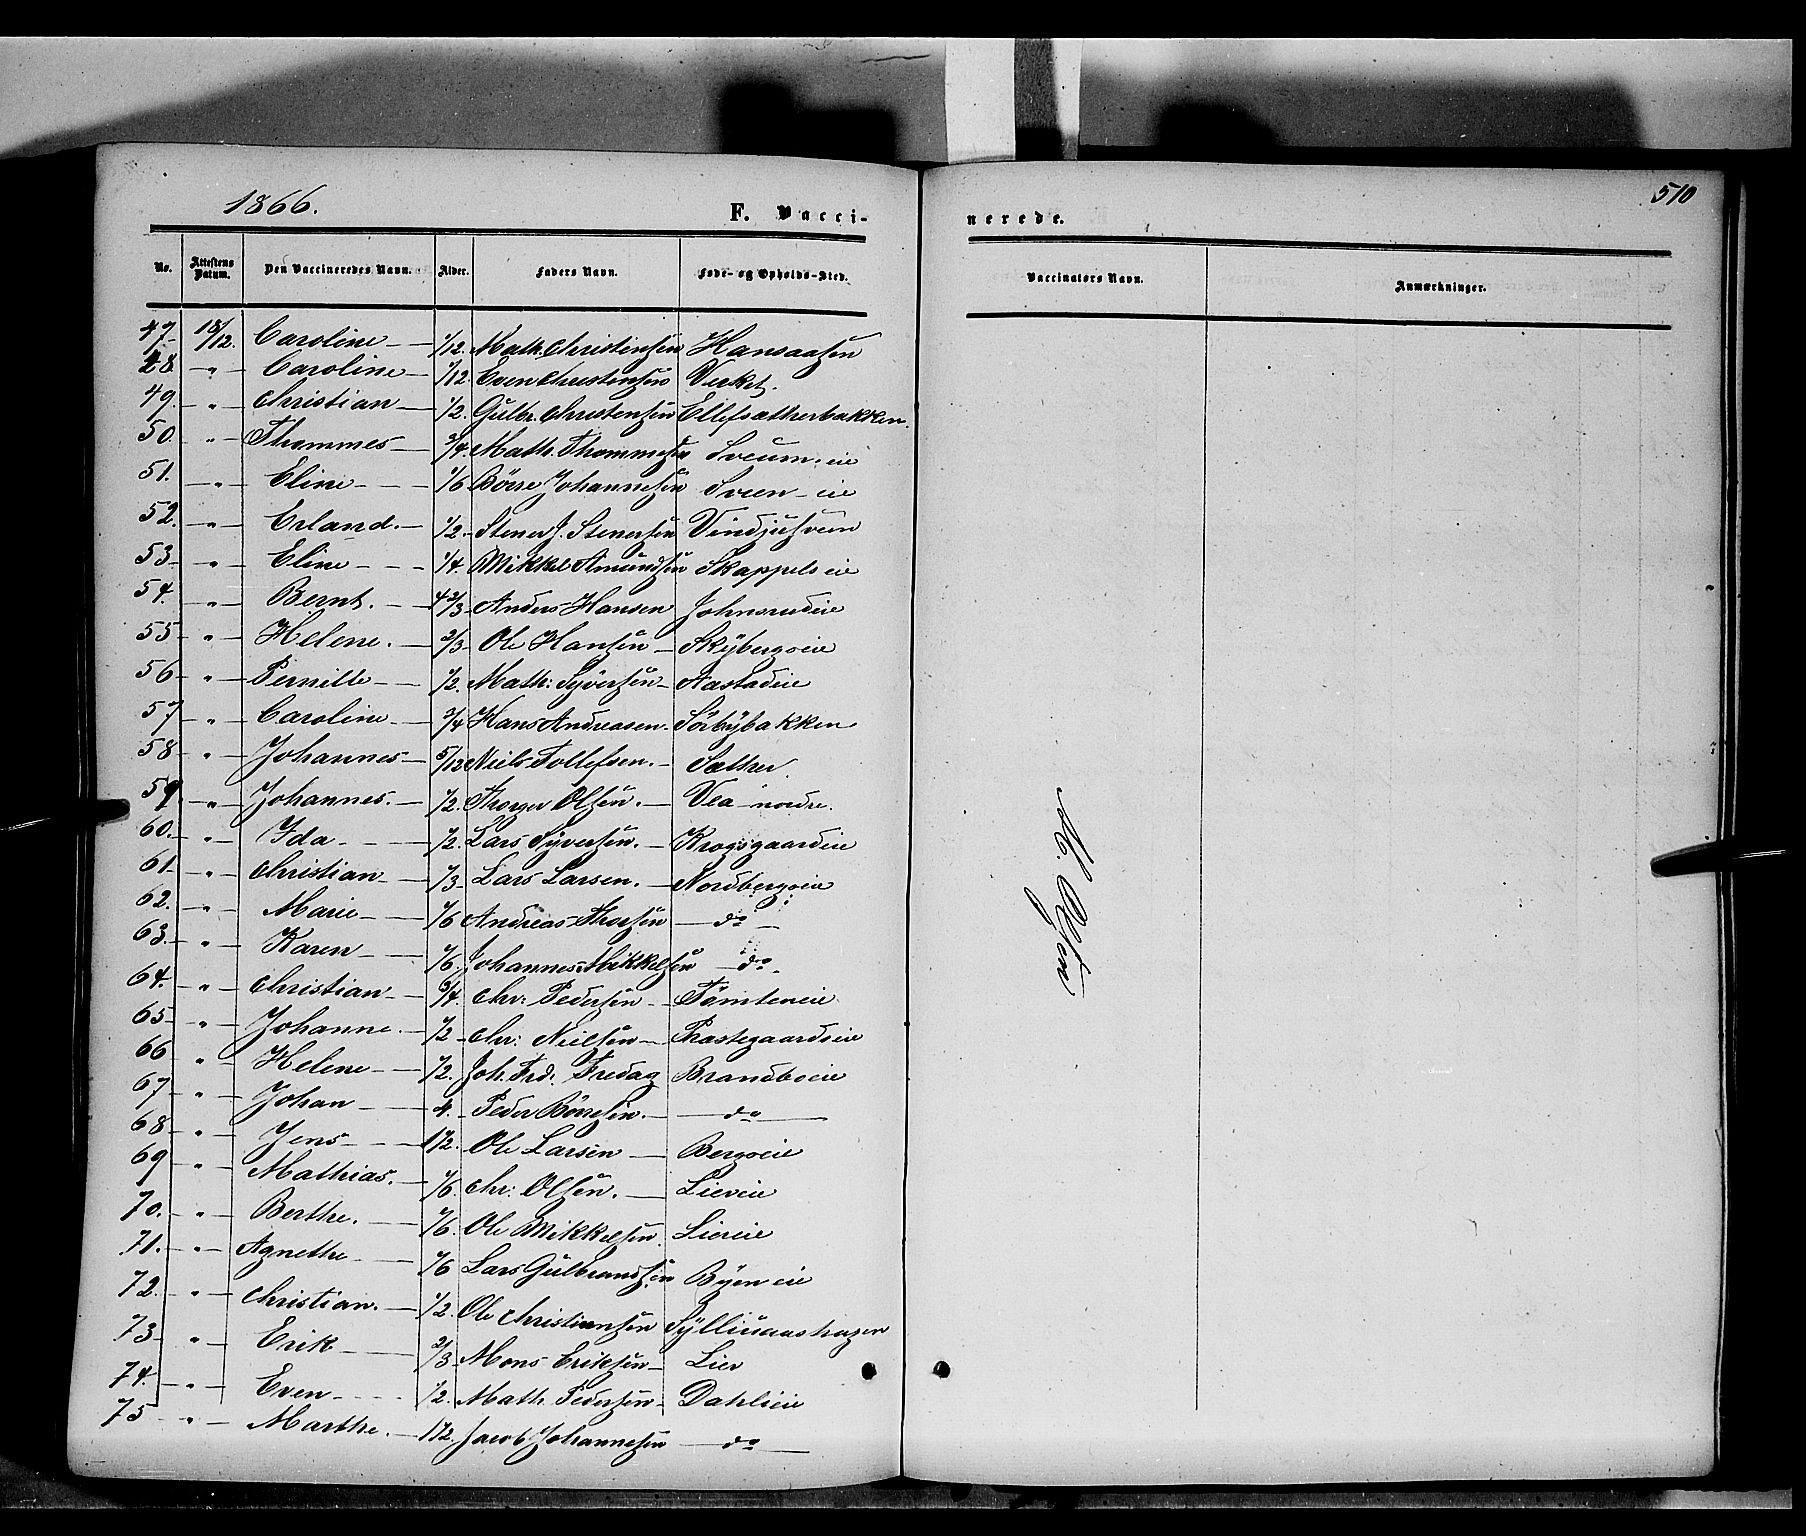 1866.
F. Vacci-
nerede.
510
No. Attestens Datum. Den Vaccineredes Navn. Alder. Faders Navn. Føde- og Opholds-Sted.
Vaccinators Navn. Anmærkninger.
47. 18/12. Caroline 1/12. Math. Christensen Hansaasen
48 " Caroline 1/12 Even Christensen Verket.
49. " Christian 1/2. Gulbr. Christensen Ellefsætherbakken.
50. " Thommes 3/4. Math. Thommesen Sveum eie
51. " Eline 1/6 Børre Johannesen Sveen eie
52. " Erland. 1/2. Stener J. Stenersen Vindjusveen
53 " Eline 1/4. Mikkel Amundsen Skappels eie
54. " Bernt. 4 2/3 Anders Hansen Johnsrudeie
55 " Helene. 2/3 Ole Hansen Skybergseie
56 " Pernille 1/2. Math: Syversen Aastadeie
57 " Caroline 3/4 Hans Andreasen Sørbybakken
58 " Johannes 5/12 Niels Tollefsen. Sæther.
59 " Johannes. 1/2. Thorger Olsen. Vea nordre.
60. " Ida 1/2. Lars Syversen. Krogsgaardeie
61 " Christian 1/3 Lars Larsen. Nordbergseie
62. " Marie 1/6 Andreas Thorsen do
63. " Karen 1/6. Johannes Mikkelsen do.
64. " Christian 3/4. Chr: Pedersen Tømteneie
65 " Johanne. 1/2 Chr: Nielsen Præstegaardseie
66 " Helene 1/2. Joh. Frd. Fredag Brandboeie
67 " Johan 4. Peder Børresen. do
68 " Jens 1 1/2. Ole Larsen Bergseie
69 " Mathias. 1/6. Chr: Olsen. Liereie
70. " Berthe. 1/6. Ole Mikkelsen. Liereie
71. " Agnethe 1/6 Lars Gulbrandsen Byen eie
72. " Christian. 1/2. Ole Christiansen
73 " Erik 2/3 Mons Eriksen Lier
74. " Even 1/2. Math. Pedersen Dahleie
75 " Marthe. 1 1/2. Jacob Johannesen do